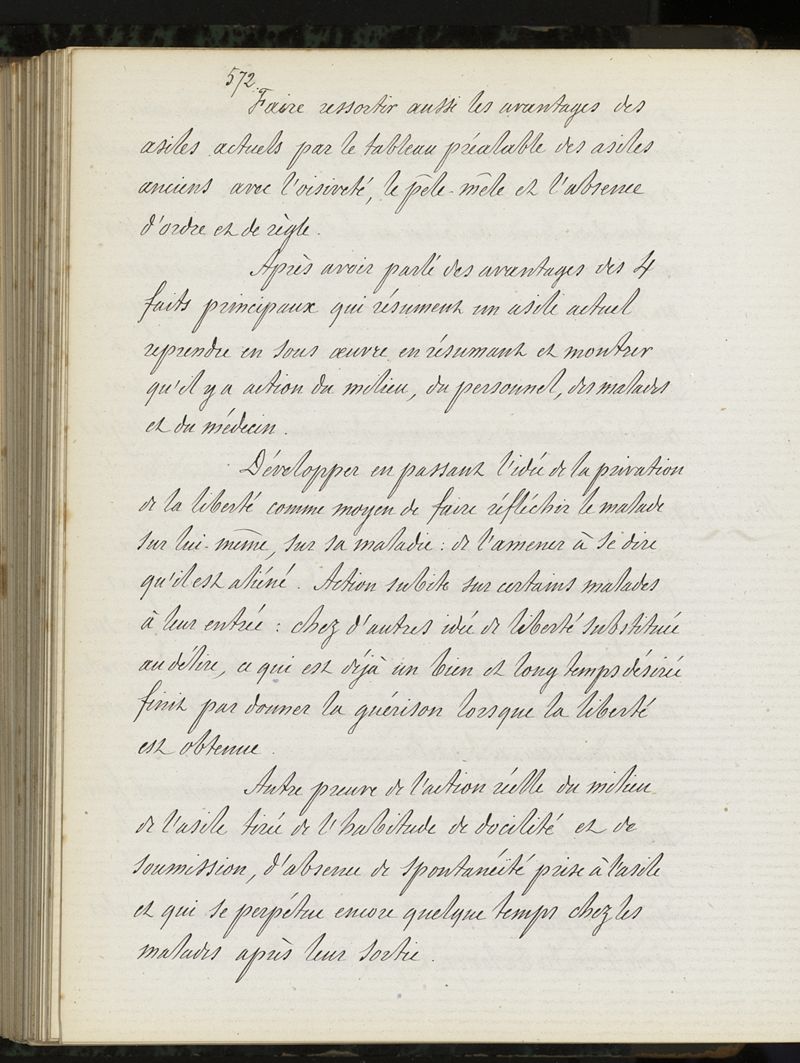 572.
Faire ressortir aussi les avantages des
asiles actuels par le tableau préalable des asiles
anciens avec l'oisiveté, le pêle-mêle et l'absence
d'ordre et de règle.
Après avoir parlé des avantages des 4
faits principaux qui résument un asile actuel
reprendre en sous œuvre en résumant et montrer
qu'il y a action du milieu, du personnel, des malades
et du médecin.
Développer en passant l'idée de la privation
de la liberté comme moyen de faire réfléchir le malade
sur lui-même, sur sa maladie : de l'amener à se dire
qu'il est aliéné. Action subite sur certains malades
à leur entrée : chez d'autres idée de liberté substituée
au délire, ce qui est déjà un bien et long temps désirée
finit par donner la guérison lorsque la liberté
est obtenue.
Autre preuve de l'action réelle du milieu
de l'asile tirée de l'habitude de docilité et de
soumission, d'absence de spontanéité prise à l'asile
et qui se perpétue encore quelque temps chez les
malades après leur sortie.